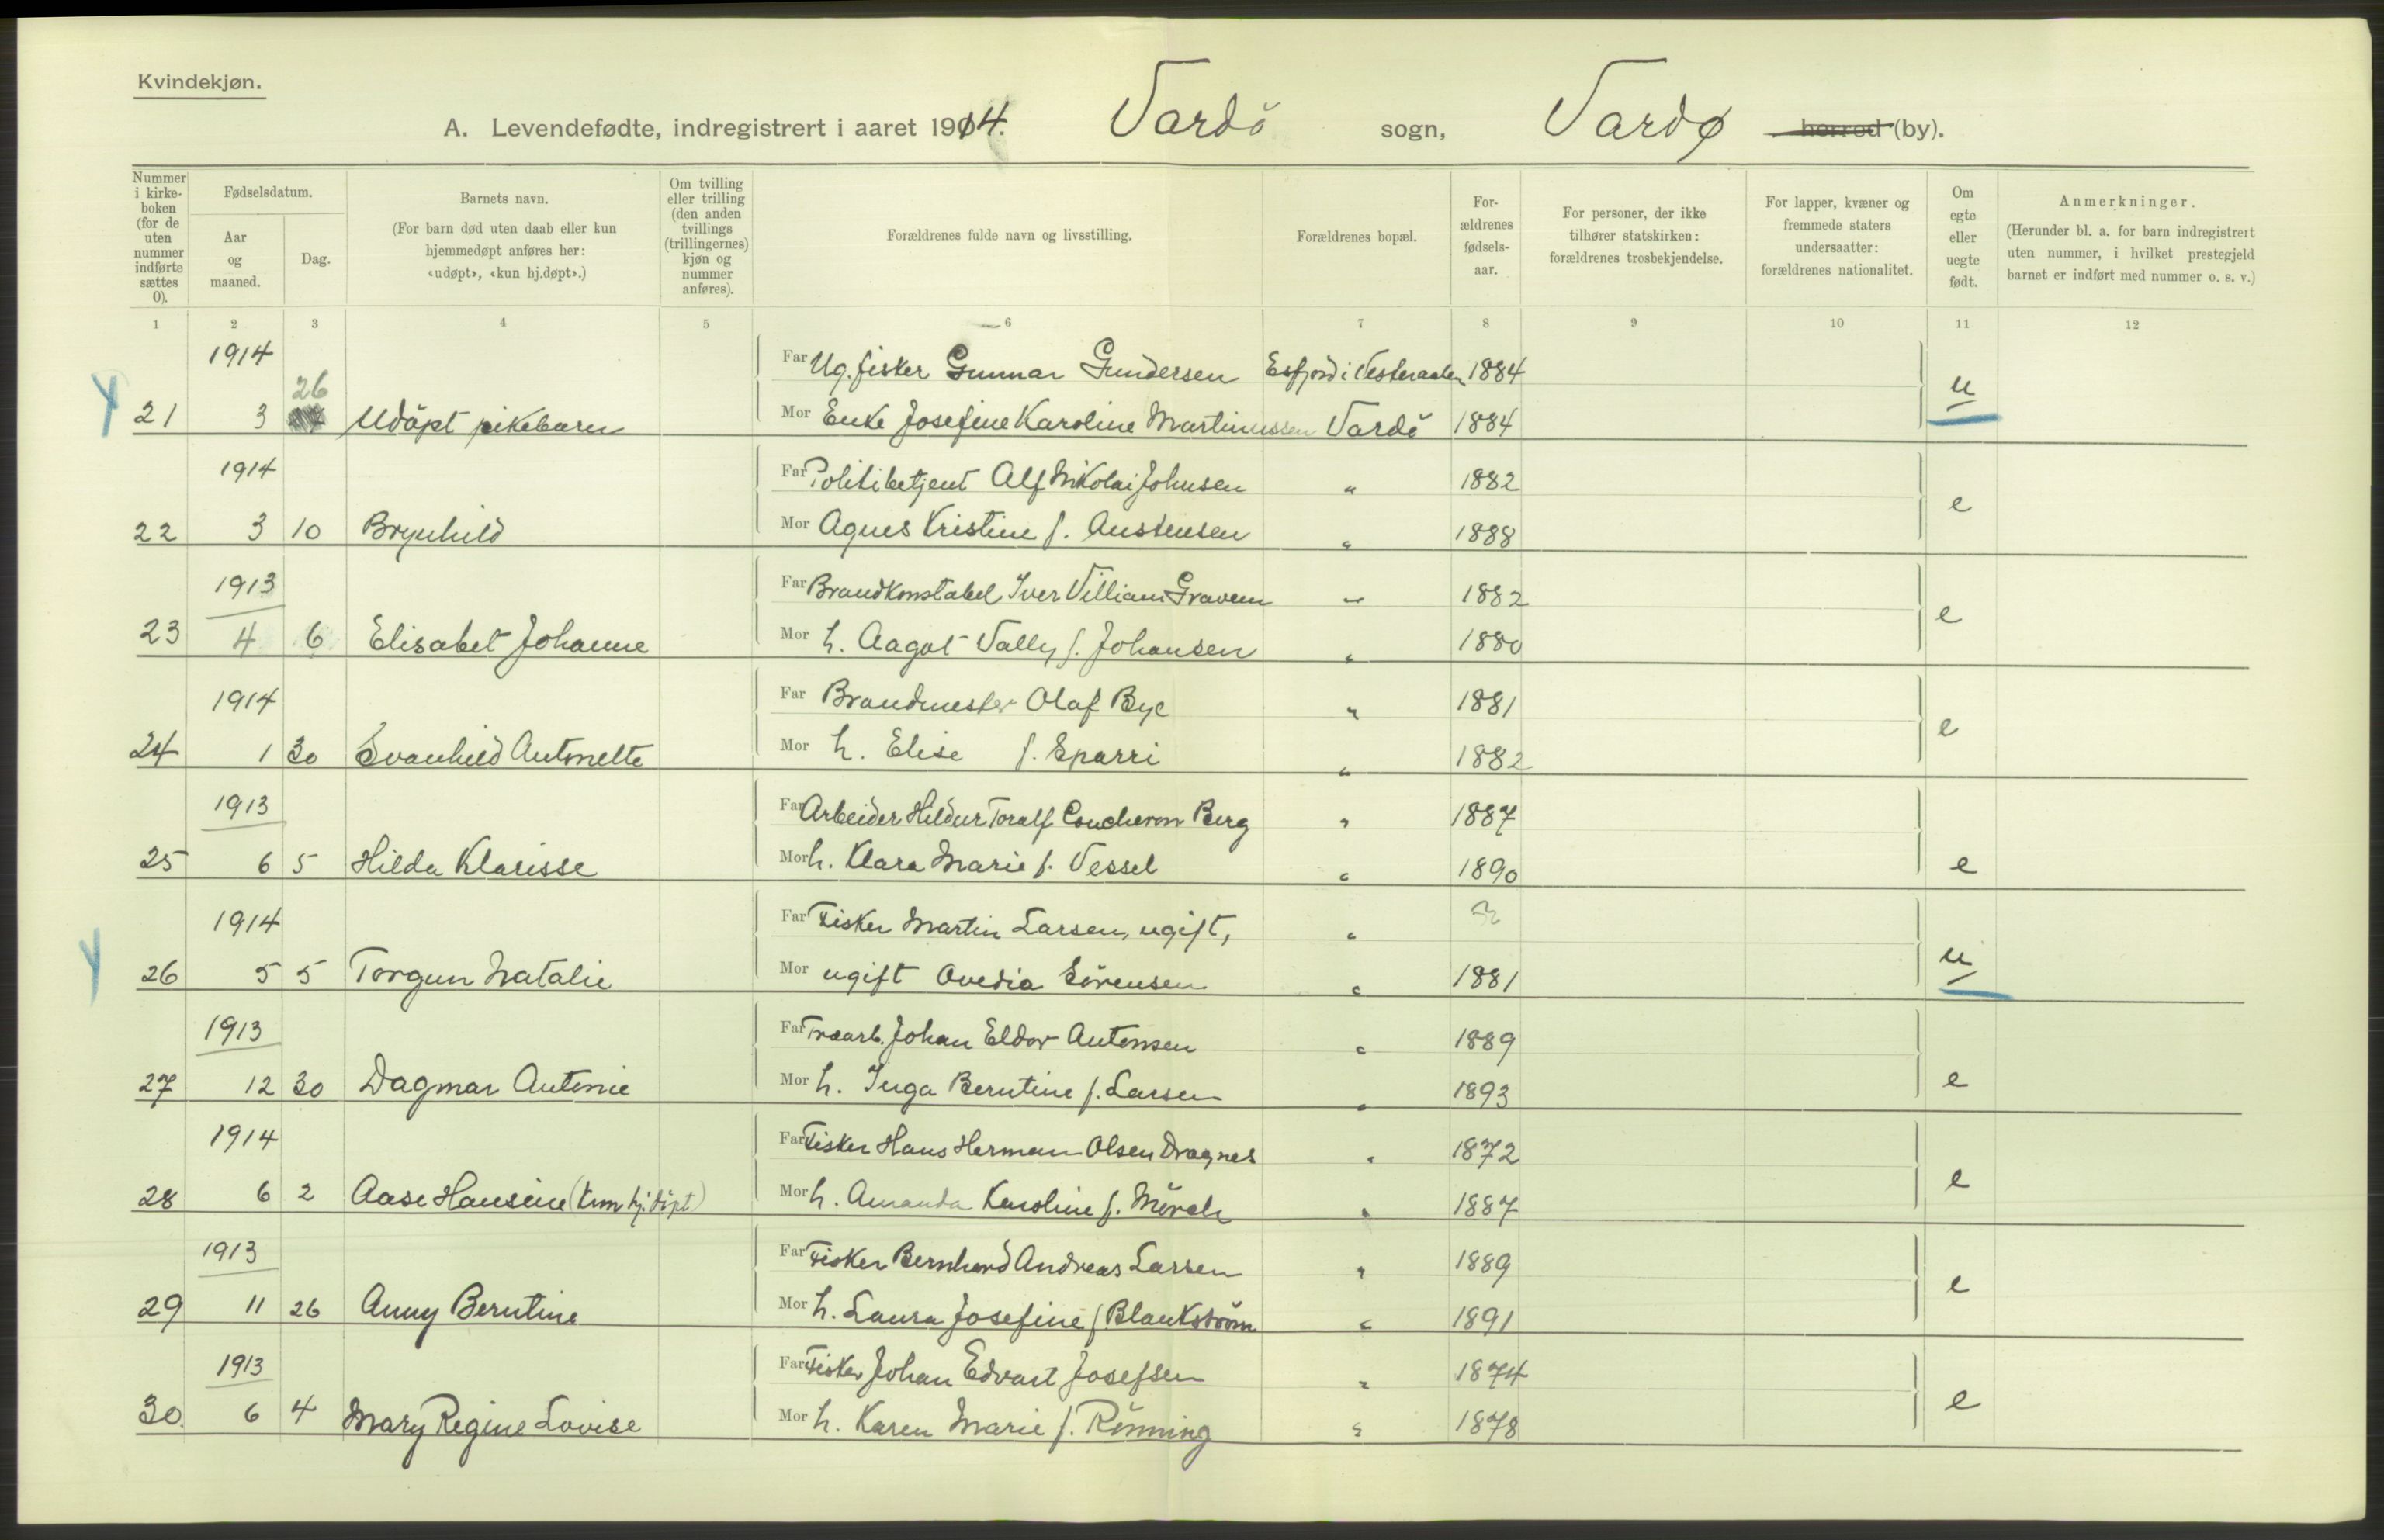 Kvindekjøn.
A. Levendefødte, indregistrert i aaret 1914. Vardö sogn, Vardø herred (by).
Nummer i kirkeboken (for de uten nummer indførte sættes 0).
Fødselsdatum.
Aar og maaned.
Dag.
Barnets navn.
(For barn død uten daab eller kun hjemmedøpt anføres her: «udøpt», «kun hj.døpt».)
Om tvilling eller trilling (den anden tvillings (trillingernes) kjøn og nummer anføres).
Forældrenes fulde navn og livsstilling.
Forældrenes bopæl.
Forældrenes fødselsaar.
For personer, der ikke tilhører statskirken: forældrenes trosbekjendelse.
For lapper, kvæner og fremmede staters undersaatter: forældrenes nationalitet.
Om egte eller uegte født.
Anmerkninger.
(Herunder bl. a. for barn indregistrert uten nummer, i hvilket prestegjeld barnet er indført med nummer o. s. v.)
1 2 3 4 5 6 7 8 9 10 11 12
1914 Far Ug. fisker Gunnar Gundersen Esfjord i Vesteraalen 1884
21 3 26 Udöpt pikebarn Mor Enke Josefine Karoline Martinussen Vardö 1884 u
1914 Far Politibetjent Alf Nikolai Johnsen " 1882
22 3 10 Brynhild Mor Agnes Kristine f. Austensen " 1888 e
1913 Far Brandkonstabel Iver Villiam Gravem " 1882
23 4 6 Elisabet Johanne Mor h. Aagot Vally f. Johansen " 1880 e
1914 Far Brandmester Olaf Bye " 1881
24 1 30 Svanhild Antonette Mor h. Elise f. Sparri " 1882 e
1913 Far Arbeider Hildur Toralf Coucheron Berg " 1887
25 6 5 Hilda Klarisse Mor h. Klara Marie f. Vessel " 1890 e
1914 Far Fisker Martin Larsen, ugift, " ?
26 5 5 Torgun Natalie Mor ugift Ovedia Sörensen " 1881 u
1913 Far Træarb. Johan Eldor Antonsen " 1889
27 12 30 Dagmar Antonie Mor h. Inga Berntine f. Larsen " 1893 e
1914 Far Fisker Hans Herman Olsen Dragnes " 1872
28 6 2 Aase Hansine (kun hj. döpt) Mor h. Amanda Karoline f. Mörch " 1887 e
1913 Far Fisker Bernhard Andreas Larsen " 1889
29 11 26 Anny Berntine Mor h. Laura Josefine f Blankström " 1891 e
1913 Far Fisker Johan Edvart Josefsen " 1874
30. 6 4 Mary Regine Lovise Mor h. Karen Marie f. Rönning " 1878 e